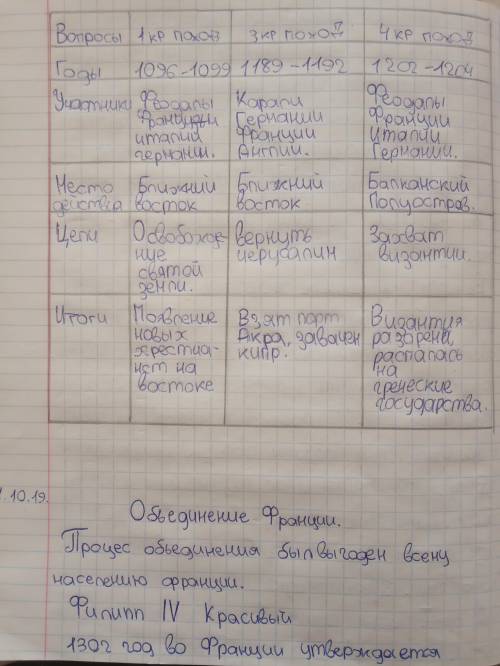 Вопросы 1 кр поход 3 кр поход 4 кр поход
Годы 1096-1099 1189-1192 1202-1204
Участники Феодалы Карали Феодалы
Франции Германии Франции
италии Франции италии
германии. Англии. Германии.
Место Ближний Ближний Балканский
действия восток восток Полуостров.
Цели Освобожде- вернуть Захват
ние иерусалим византии.
святой
земли.
Итоги Появление Взят порт Византия
новых Акра, заваёчен разорена,
хрестиа- кипр. распалась
нст на на
востоке греческие
государства.
.10.19.
Обьединение Франции.
Процес обьединения был выгоден всему
населению франции.
Филипп IV Красивый
1302 год во Франции утверждается